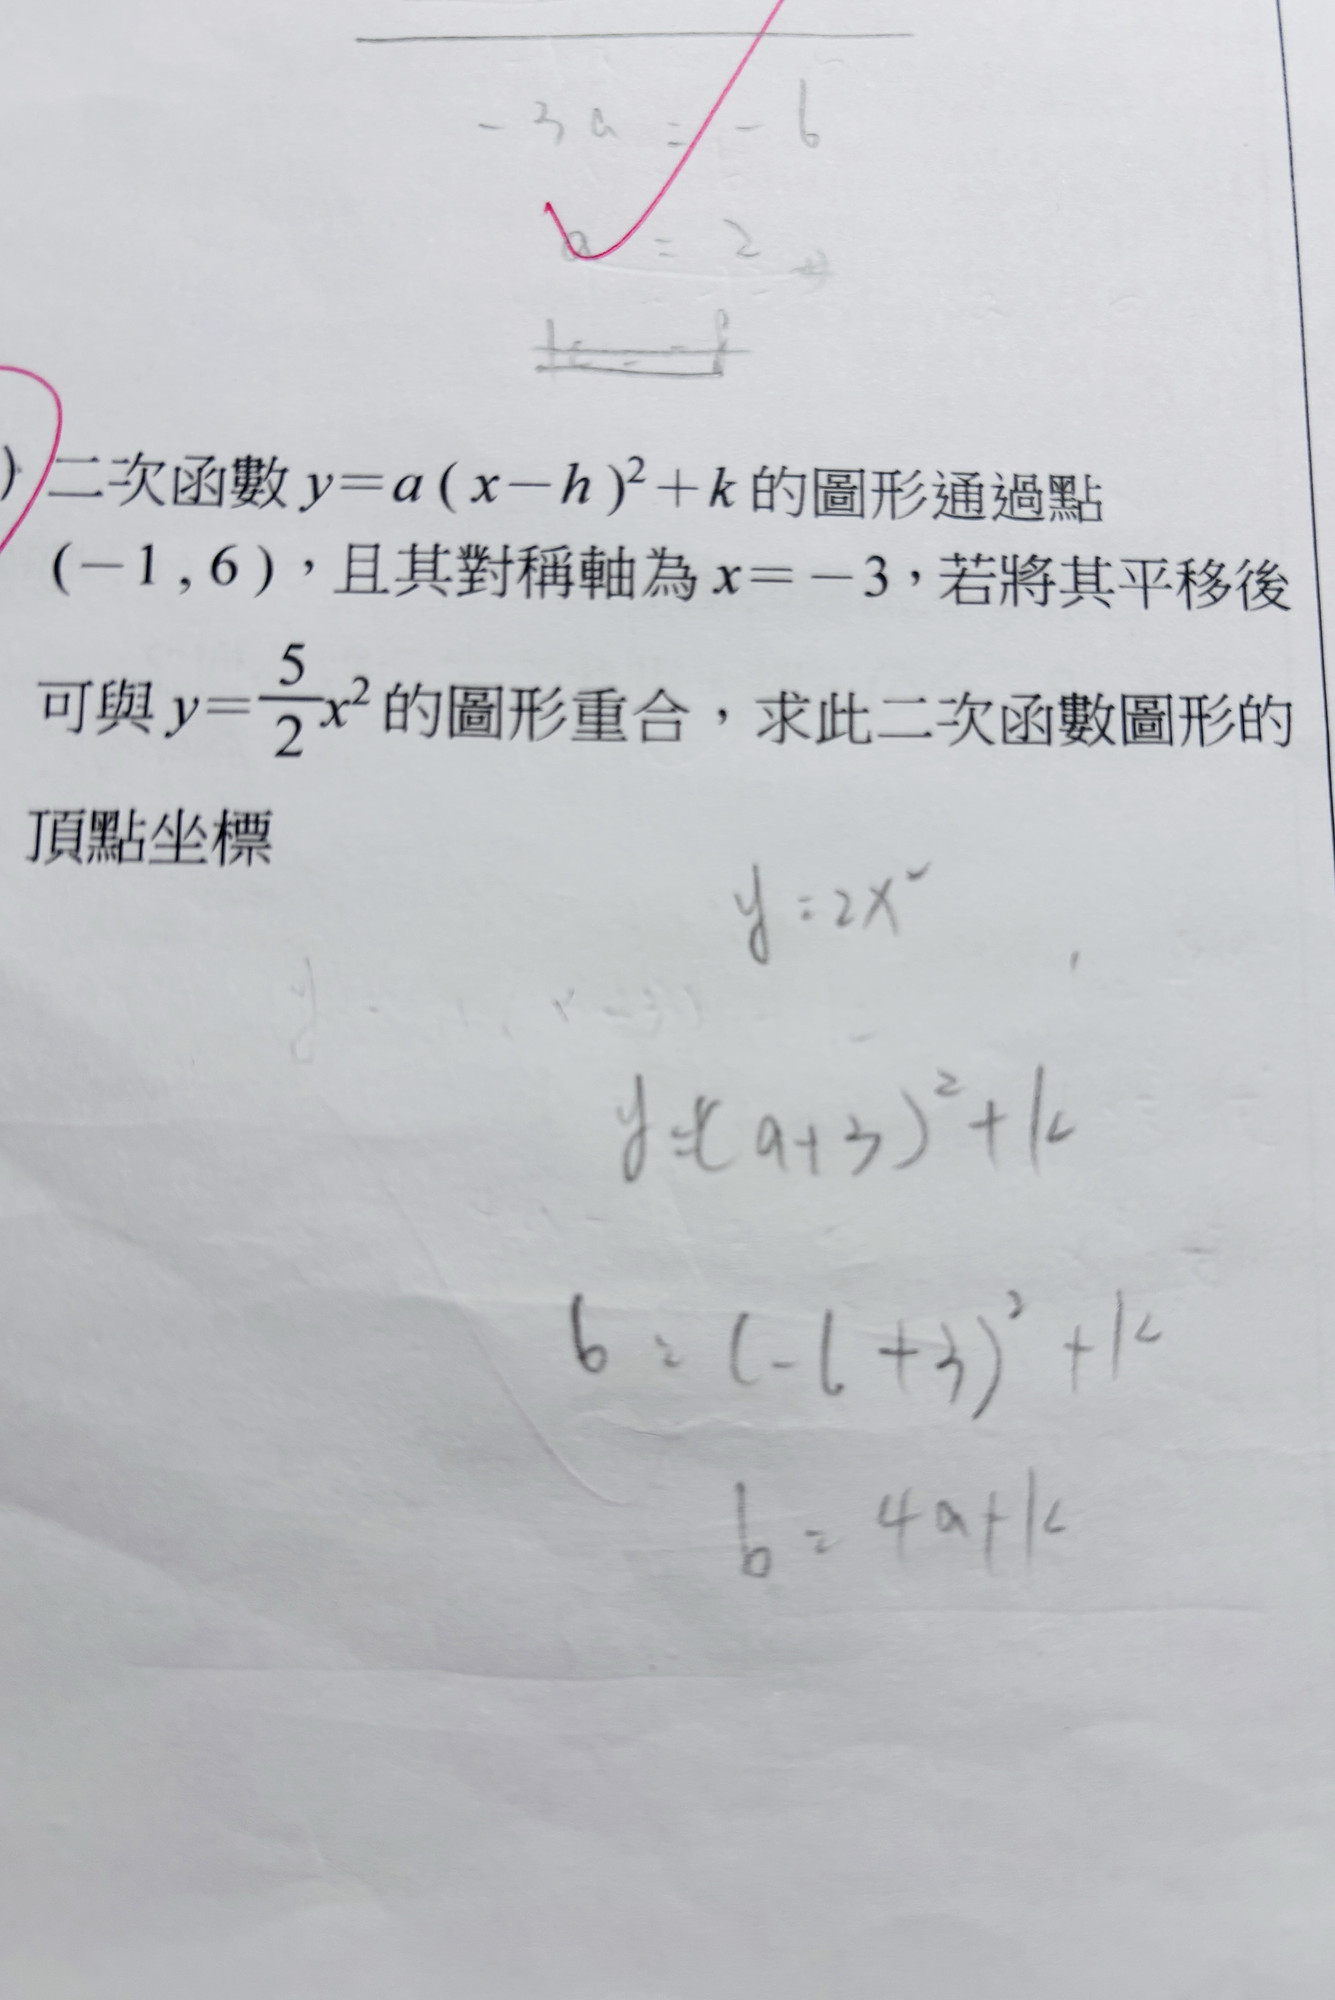 -3a = -6
a = 2
) 二次函數 y=a(x-h)²+k 的圖形通過點
(-1,6)，且其對稱軸為 x=-3，若將其平移後
可與 y=5/2x² 的圖形重合，求此二次函數圖形的
頂點坐標
y=2x²
y=(a+3)²+k
6=(-1+3)²+k
6=4a+k